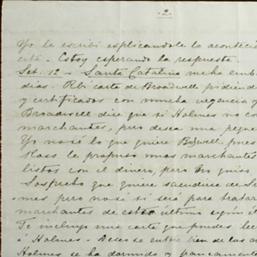 2
Yo le escribí esplicandole lo acontecid
está. Estoy esperando la respuesta.
Set. 12 - Santa Catalina me ha emb
dias. Rbí carta de Broadwell pidiendo
y certificados con mucha urgencia y
Broadwell dice que si Holmes no co
marchantes, pero desea una peque
Yo no sé lo que quiere Bdwell pues
Ross le propuso mas marchantes
listos con el dinero, pero no quiso
Sospecho que quiere sacudirse de
mes pero no sé si será para tratar
marchantes de este último según el
Te incluyo una carta que puedes lee
á Holmes.
Holmes se ha dormido y